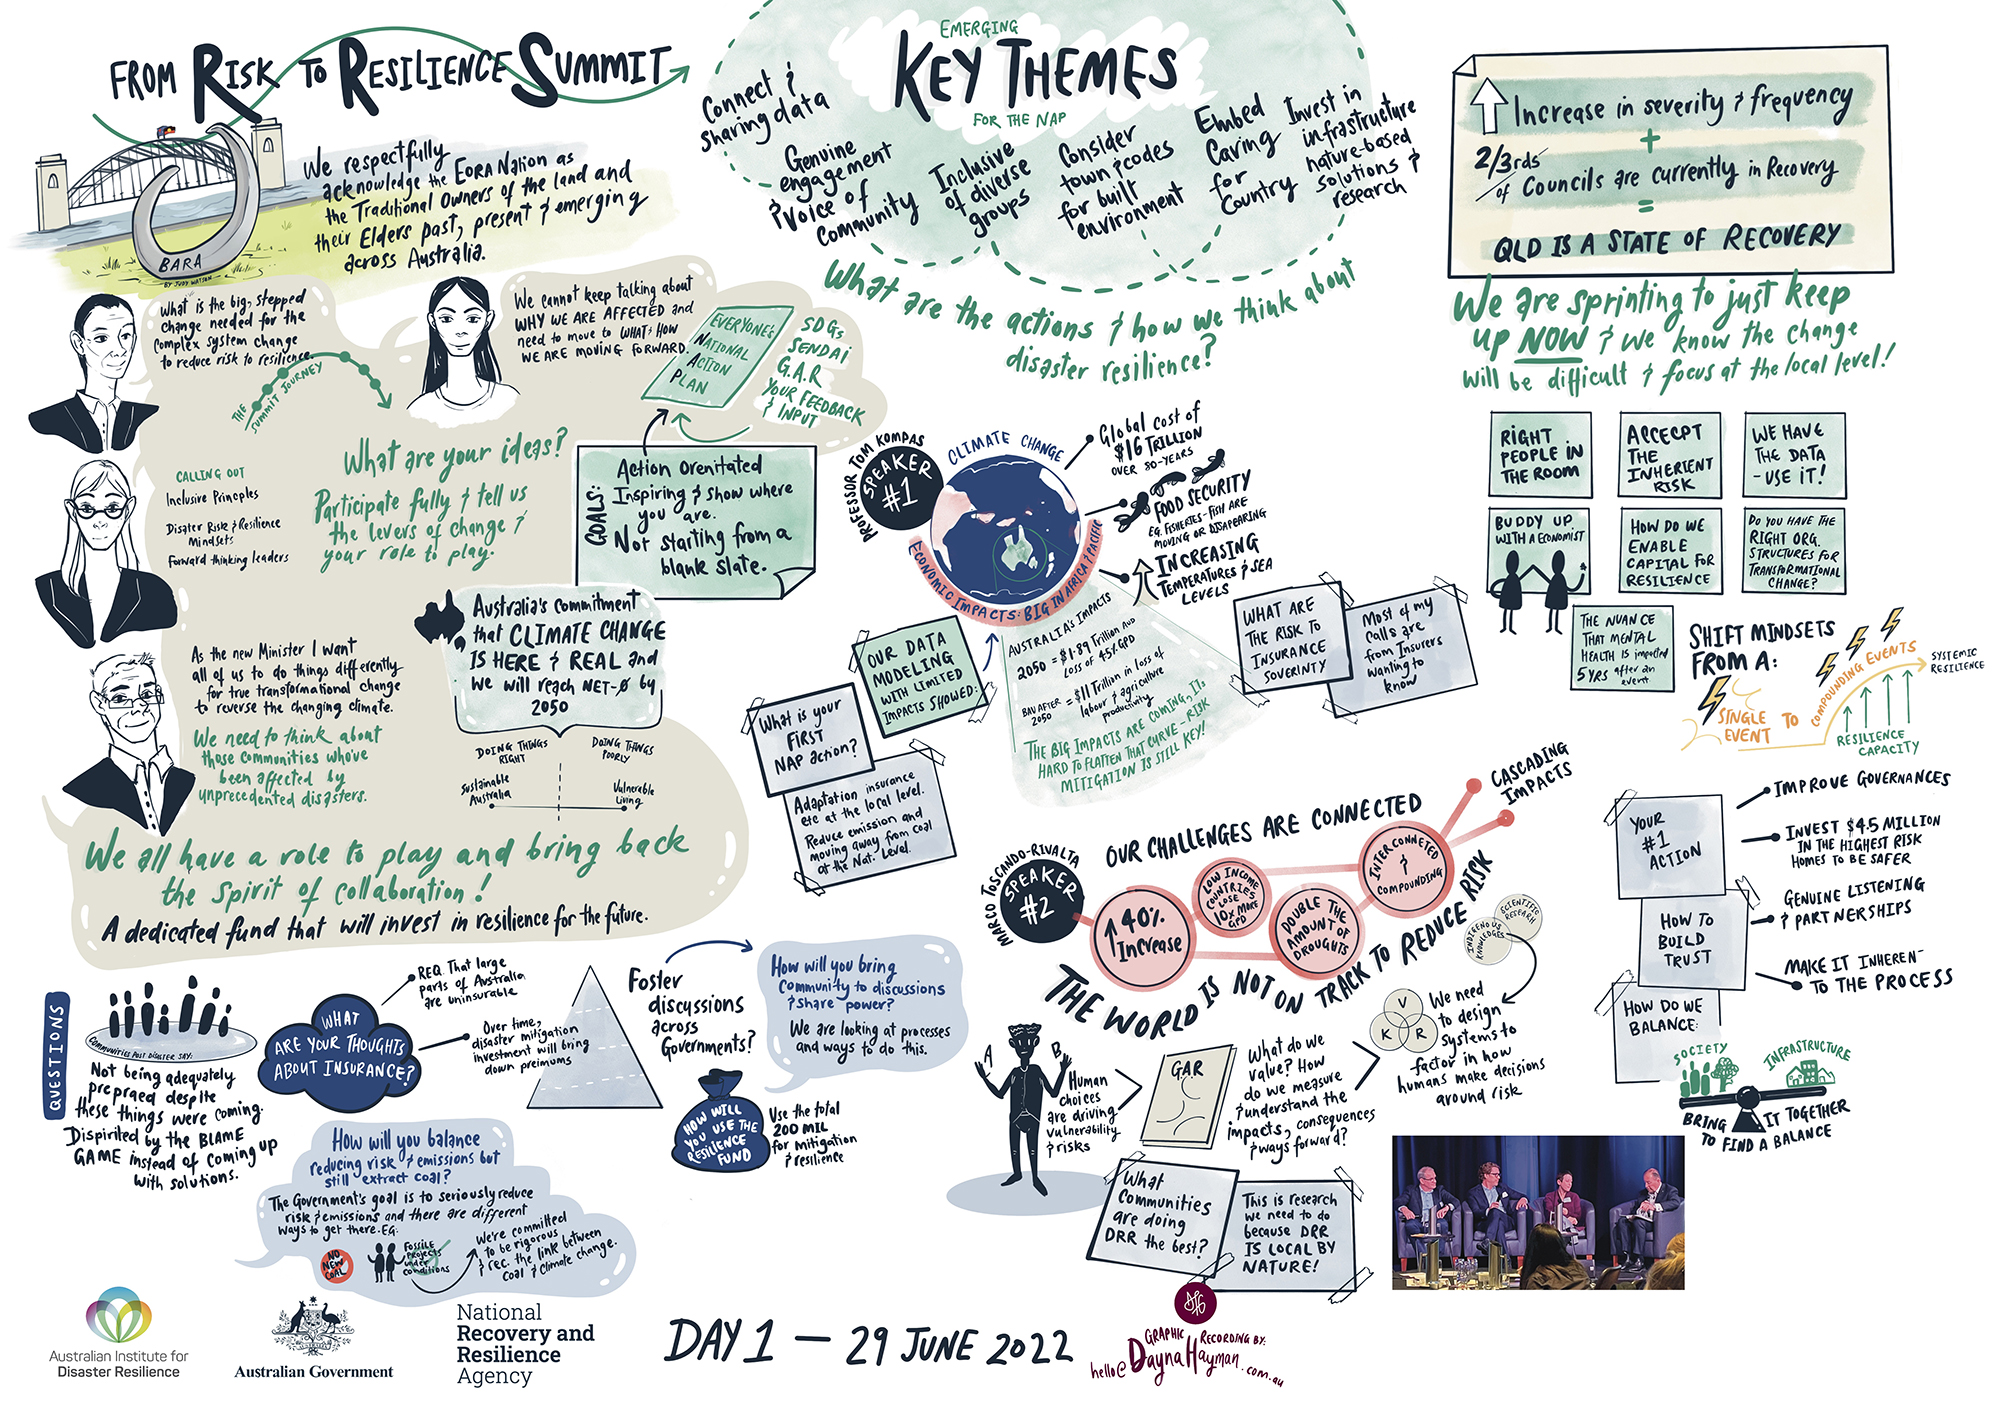 FROM RISK TO RESILIENCE SUMMIT
We respectfully
acknowledge the EORA NATION as
the Traditional Owners of the land and
their Elders past, present & emerging
across Australia.
BARA
BY JUDY WATSON
What is the big, stepped
change needed for the
complex system change
to reduce risk to resilience.
THE SUMMIT JOURNEY
We cannot keep talking about
WHY WE ARE AFFECTED and
need to move to WHAT & HOW
WE ARE MOVING FORWARD.
EVERYONE'S
NATIONAL
ACTION
PLAN
SDGs
SENDAI
G.A.R
YOUR FEEDBACK
& INPUT
What are your ideas?
Participate fully & tell us
the levers of change &
your role to play.
CALLING OUT
Inclusive Principles
Disater Risk & Resilience
Mindsets
Forward thinking leaders
GOALS:
Action Orenitated
Inspiring & show where
you are.
Not starting from a
blank slate.
Australia's Commitment
that CLIMATE CHANGE
IS HERE & REAL and
we will reach NET-0 by
2050
As the new Minister I want
all of us to do things differently
for true transformational change
to reverse the changing climate.
We need to think about
those communities who've
been affected by
unprecedented disasters.
DOING THINGS
RIGHT
DOING THINGS
POORLY
Sustainable
Australia
Vulnerable
Living
We all have a role to play and bring back
the spirit of collaboration!
A dedicated fund that will invest in resilience for the future.
EMERGING
KEY THEMES
FOR THE NAP
Connect &
sharing data
Genuine
engagement
& voice of
community
Inclusive
of diverse
groups
Consider
town & codes
for built
environment
Embed
Caring
for
Country
Invest in
infrastructure
nature-based
solutions &
research
What are the actions & how we think about
disaster resilience?
Increase in severity & frequency
+
2/3rds
of Councils are currently in Recovery
=
QLD IS A STATE OF RECOVERY
We are sprinting to just keep
up NOW & we know the change
will be difficult & focus at the local level!
PROFESSOR TOM KOMPAS
SPEAKER
#1
CLIMATE CHANGE
ECONOMIC IMPACTS: BIG IN AFRICA & PACIFIC
Global cost of
$16 TRILLION
OVER 80-YEARS
FOOD SECURITY
EG. FISHERIES - FISH ARE
MOVING OR DISAPPEARING
INCREASING
TEMPERATURES & SEA
LEVELS
OUR DATA
MODELING
WITH LIMITED
IMPACTS SHOWED:
AUSTRALIA'S IMPACTS
2050 = $1.89 Trillion AUD
LOSS OF 45% GPD
BAU AFTER
2050
= $11 Trillion in loss of
labour & agriculture
productivity
THE BIG IMPACTS ARE COMING, ITS
HARD TO FLATTEN THAT CURVE - RISK
MITIGATION IS STILL KEY!
What is your
FIRST
NAP action?
Adaptation insurance
etc at the local level.
Reduce emission and
moving away from coal
at the Nat. Level.
WHAT ARE
THE RISK TO
INSURANCE
SOVERINTY
Most of my
calls are
from Insurers
wanting to
know
RIGHT
PEOPLE IN
THE ROOM
ACCECPT
THE
INHERIENT
RISK
WE HAVE
THE DATA
- USE IT!
BUDDY UP
WITH A ECONOMIST
HOW DO WE
ENABLE
CAPITAL FOR
RESILIENCE
DO YOU HAVE THE
RIGHT ORG.
STRUCTURES FOR
TRANSFORMATIONAL
CHANGE?
THE NUANCE
THAT MENTAL
HEALTH IS impacted
5 YRS after an
event
SHIFT MINDSETS
FROM A:
SINGLE
EVENT
TO
COMPOUNDING EVENTS
SYSTEMIC
RESILIENCE
RESILIENCE
CAPACITY
MARCO TOSCANDO-RIVALTA
SPEAKER
#2
OUR CHALLENGES ARE CONNECTED
40%
Increase
LOW INCOME
COUNTRIES
LOSE
10X MORE
GPD
DOUBLE THE
AMOUNT OF
DROUGHTS
INTERCONNETED
&
COMPOUNDING
CASCADING
IMPACTS
THE WORLD IS NOT ON TRACK TO REDUCE RISK
INDIGENOUS
KNOWLEDGES
SCIENTIFIC
RESEARCH
V
K
R
We need
to design
systems to
factor in how
humans make decisions
around risk
A
B
Human
choices
are driving
vulnerability
& risks
GAR
What do we
value? How
do we measure
& understand the
impacts, consequences
& ways forward?
What
communities
are doing
DRR the best?
This is research
we need to do
because DRR
IS LOCAL BY
NATURE!
YOUR
#1
ACTION
IMPROVE GOVERNANCES
INVEST $45 MILLION
IN THE HIGHEST RISK
HOMES TO BE SAFER
HOW TO
BUILD
TRUST
GENUINE LISTENING
& PARTNERSHIPS
MAKE IT INHEREN-
TO THE PROCESS
HOW DO WE
BALANCE:
SOCIETY
INFRASTRUCTURE
BRING IT TOGETHER
TO FIND A BALANCE
QUESTIONS
COMMUNITIES POST DISASTER SAY:
Not being adequately
prepraed despite
these things were coming.
Dispirited by the BLAME
GAME instead of coming up
with solutions.
WHAT
ARE YOUR THOUGHTS
ABOUT INSURANCE?
REQ. That large
parts of Australia
are uninsurable
Over time,
disaster mitigation
investment will bring
down preimums
Foster
discussions
across
Governments?
How will you bring
Community to discussions
& share power?
We are looking at processes
and ways to do this.
HOW WILL
YOU USE THE
RESILIENCE
FUND
Use the total
200 MIL
for mitigation
& resilience
How will you balance
reducing risk & emissions but
still extract coal?
The Government's goal is to seriously reduce
risk & emissions and there are different
ways to get there. EG:
NO
NEW
COAL
FOSSILE
PROJECTS
under
conditions
We're committed
to be rigorous
& rec. the link between
coal & climate change.
Australian Institute for
Disaster Resilience
Australian Government
National
Recovery and
Resilience
Agency
DAY 1 — 29 JUNE 2022
GRAPHIC RECORDING BY:
hello@DaynaHayman.com.au